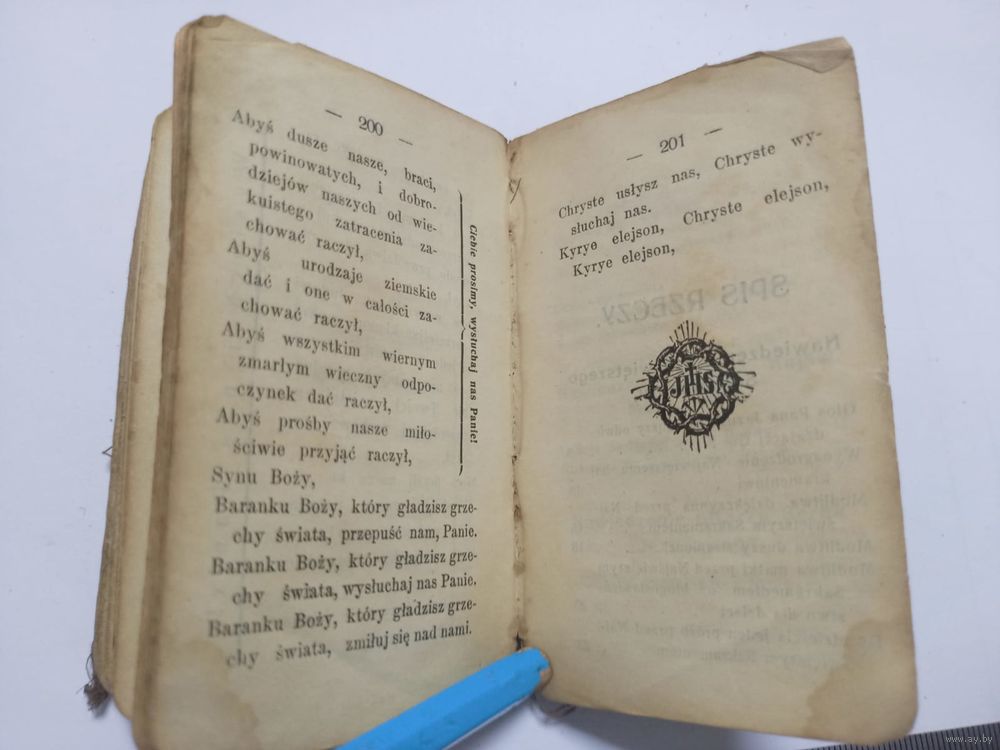 — 200 —
Abyś dusze nasze, braci,
powinowatych, i dobro-
dziejów naszych od wie-
kuistego zatracenia za-
chować raczył,
Abyś urodzaje ziemskie
dać i one w całości za-
chować raczył,
Abyś wszystkim wiernym
zmarłym wieczny odpo-
czynek dać raczył,
Abyś prośby nasze miło-
ściwie przyjąć raczył,
Ciebie prosimy, wysłuchaj nas Panie!
Synu Boży,
Baranku Boży, który gładzisz grze-
chy świata, przepuść nam, Panie.
Baranku Boży, który gładzisz grze-
chy świata, wysłuchaj nas Panie.
Baranku Boży, który gładzisz grze-
chy świata, zmiłuj się nad nami.
— 201 —
Chryste usłysz nas, Chryste wy-
słuchaj nas.
Kyrye elejson, Chryste elejson,
Kyrye elejson,
JHS
SPIS RZECZY.
www.ay.by